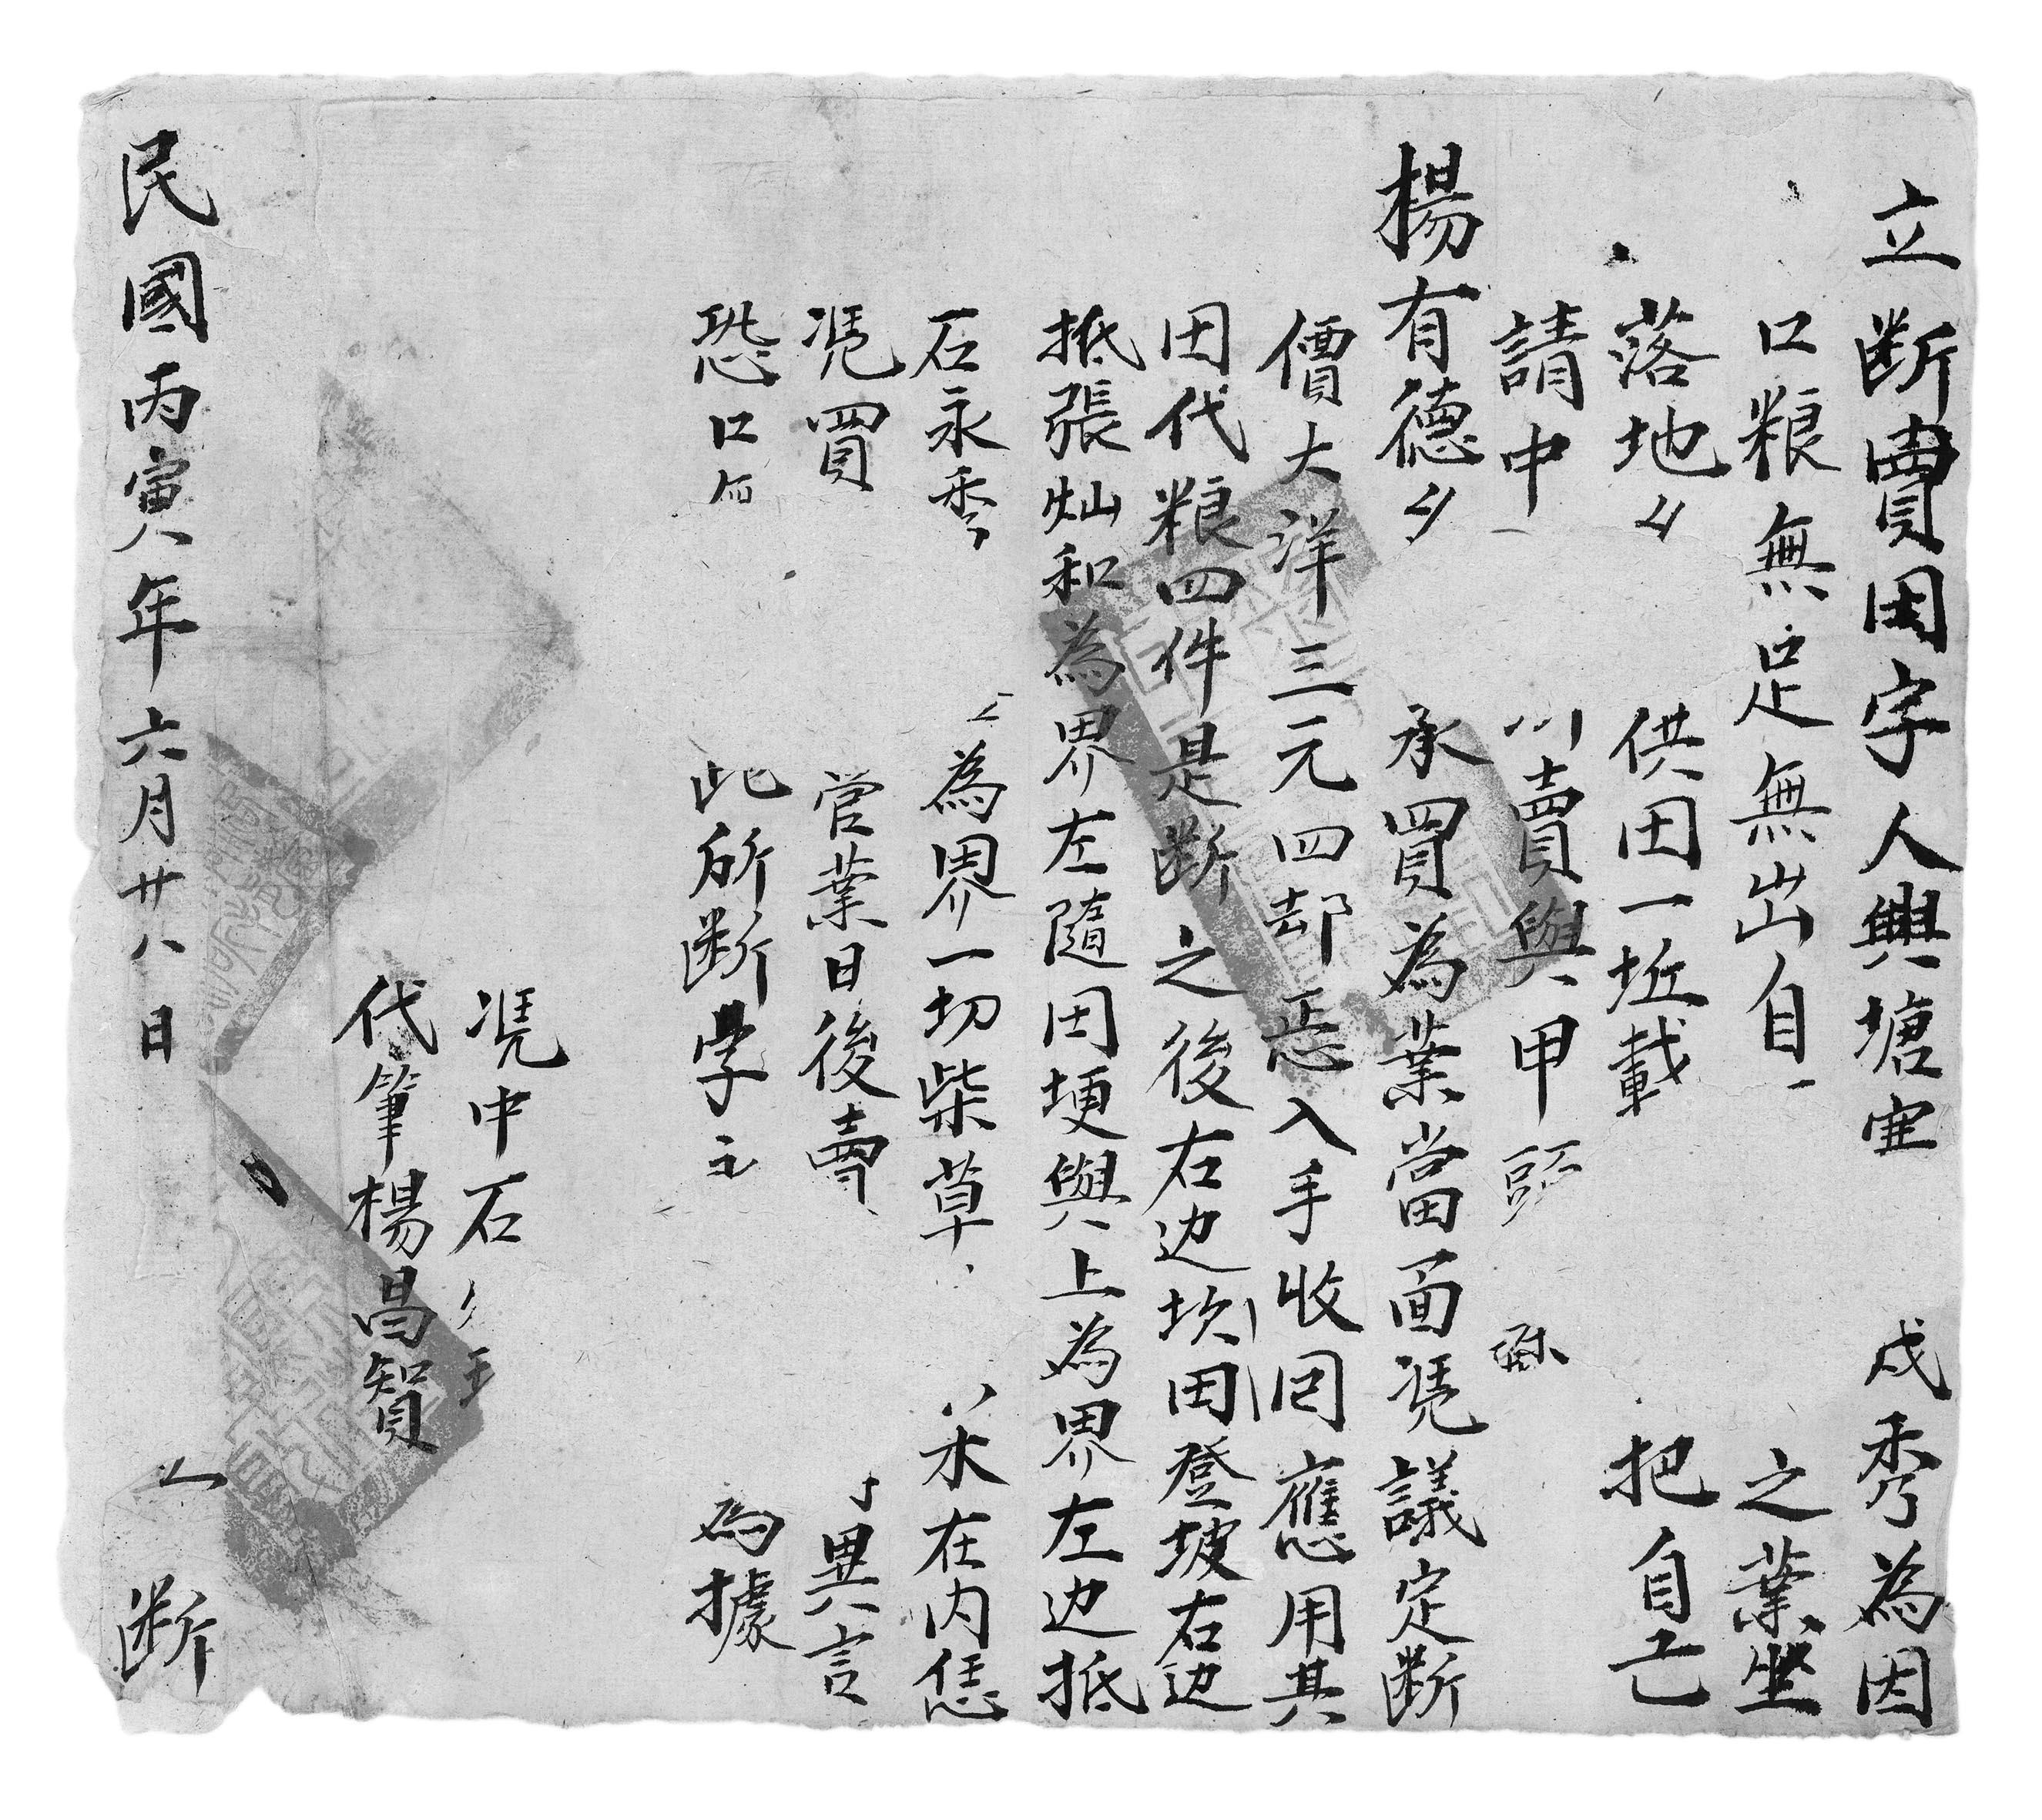 立断賣田字人興塘寨 戌秀為因
口粮無足無出自 之業坐
落地 供田一坵載 把自己
請中 賣與甲頭
楊有德 承買為業當面凴議定断
價大洋三元四却 入手收囘應用其
田代粮四件是断之後右边坎田登坡右边
抵張灿和為界左隨田埂與上為界左边抵
石永秀 為界一切柴草 米在内恁
凴買 管業日後賣 異言
恐口 此所断字 為據
凴中石 玉
代筆楊昌智
民國丙寅年六月廿八日 断